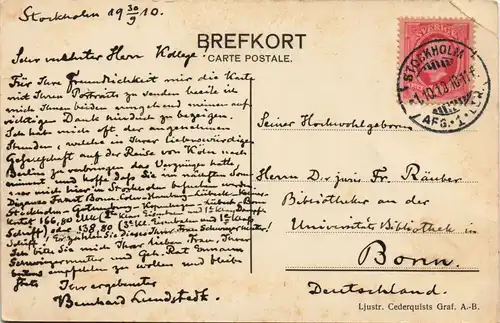 Stockholm 19 30/9 10.
Sehr verehrter Herr Kollege!
Für Ihre Freundlichkeit mir die Karte
mit Ihren Portraits zu senden beeile ich
mich Ihnen beiden umgehend meinen auf-
richtigen Dank hierdurch zu bezeigen.
Ich habe mich oft der angenehmen
Stunden, welche in Ihrer liebenswürdigen
Gesellschaft auf der Reise von Köln nach
Berlin zu verbringen das Vergnügen hatte,
erinnert und hoffe dass Sie im nächsten Sommer
mich hier in Stockholm besuchen werden.
Stockholm
kostet 166,80 Mk
Schiff) oder 138,80
Schiff).
Ich bitte Sie mich Ihrer lieben Frau, Ihrer
Schwiegermutter und Geh. Rat
bestens empfehlen zu wollen und bleibe
stets Ihr ergebenster
Bernhard Lundstedt.
BREFKORT
CARTE POSTALE.
SVERIGE
STOCKHOLM
1.10.10.10-11 F.
AFG. 1. UTR.
Seiner Hochwohlgeboren
Herrn D.r juris Fr. Räuber
Bibliothekar an der
Universitäts Bibliothek in
Bonn.
Deutschland.
Ljustr. Cederquists Graf. A.-B.